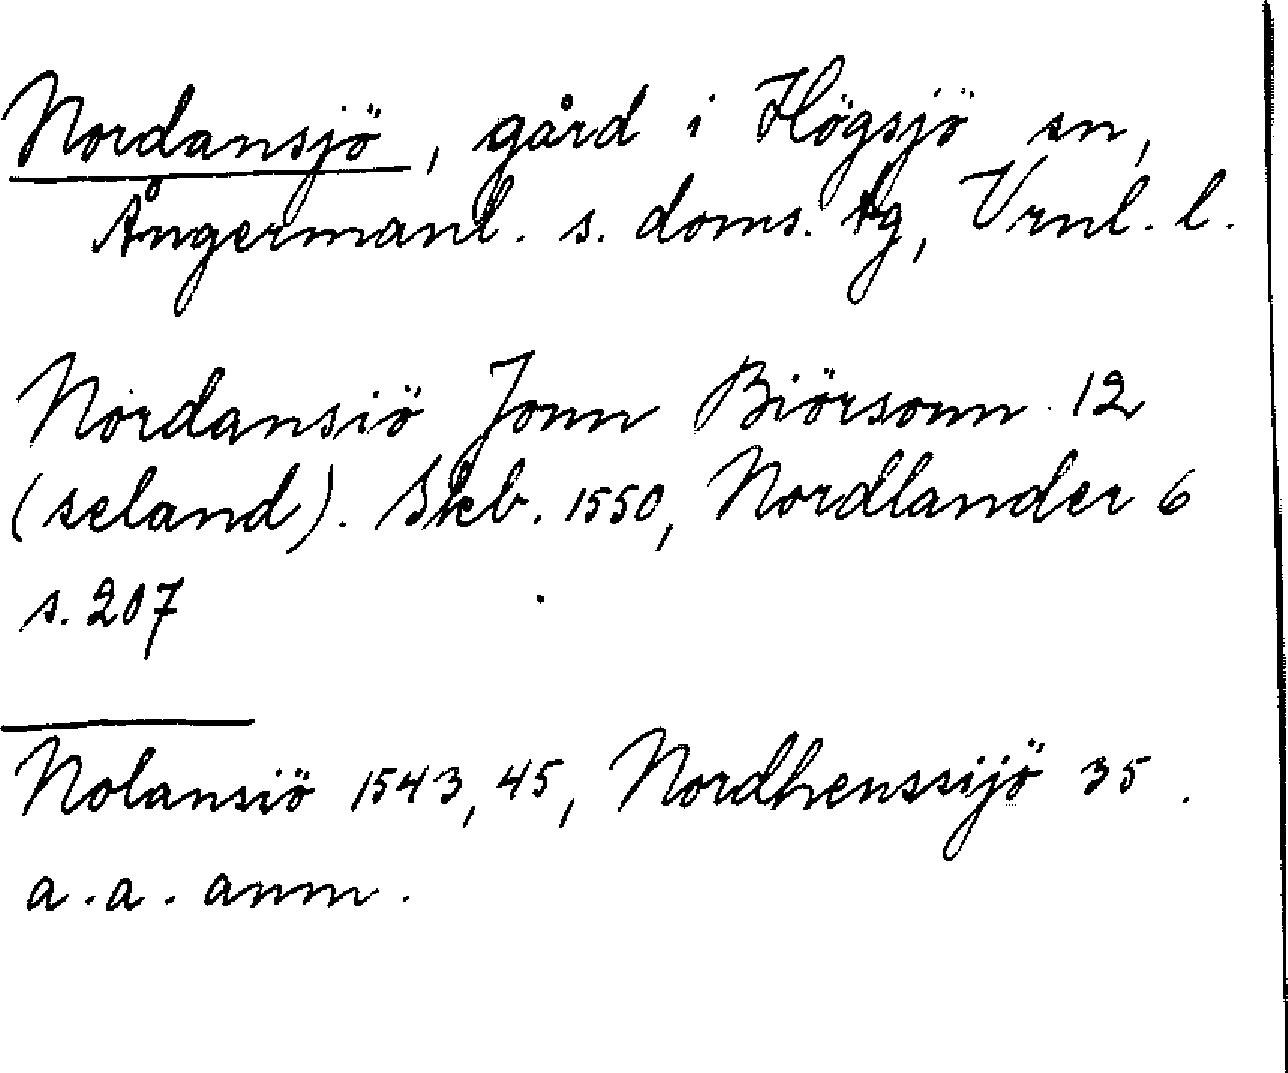 Nordansjö, gård i Högsjö sn,
Ångermanl. s. doms. tg, Vrnl. l.
Nordansiö Jonn Biörsonn 12
(seland). Skb. 1550, Nordlander 6
s. 207
Nolansiö 1543, 45, Nordhenssijö 35.
a.a. anm.